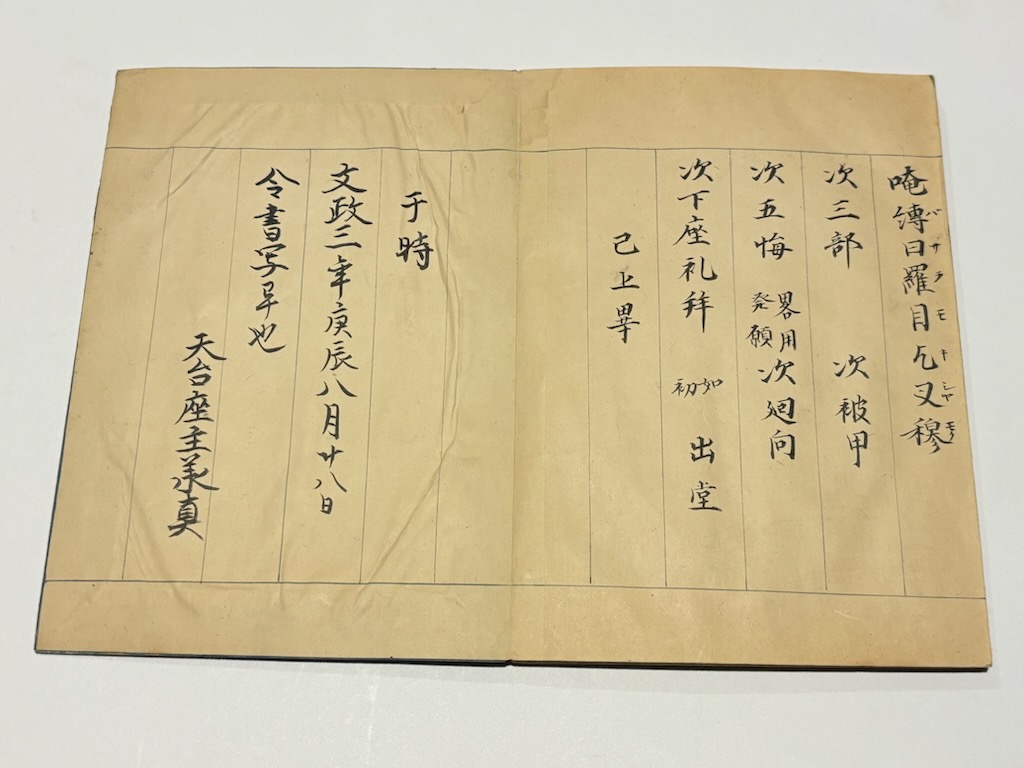 唵縛日羅目乞叉穆
バサラモキシャモク
次三部　次被甲
次五悔　畧用発願　次廻向
次下座礼拜　如初　出堂
已上畢
于時
文政三年庚辰八月廿八日
令書写早也
天台座主承真